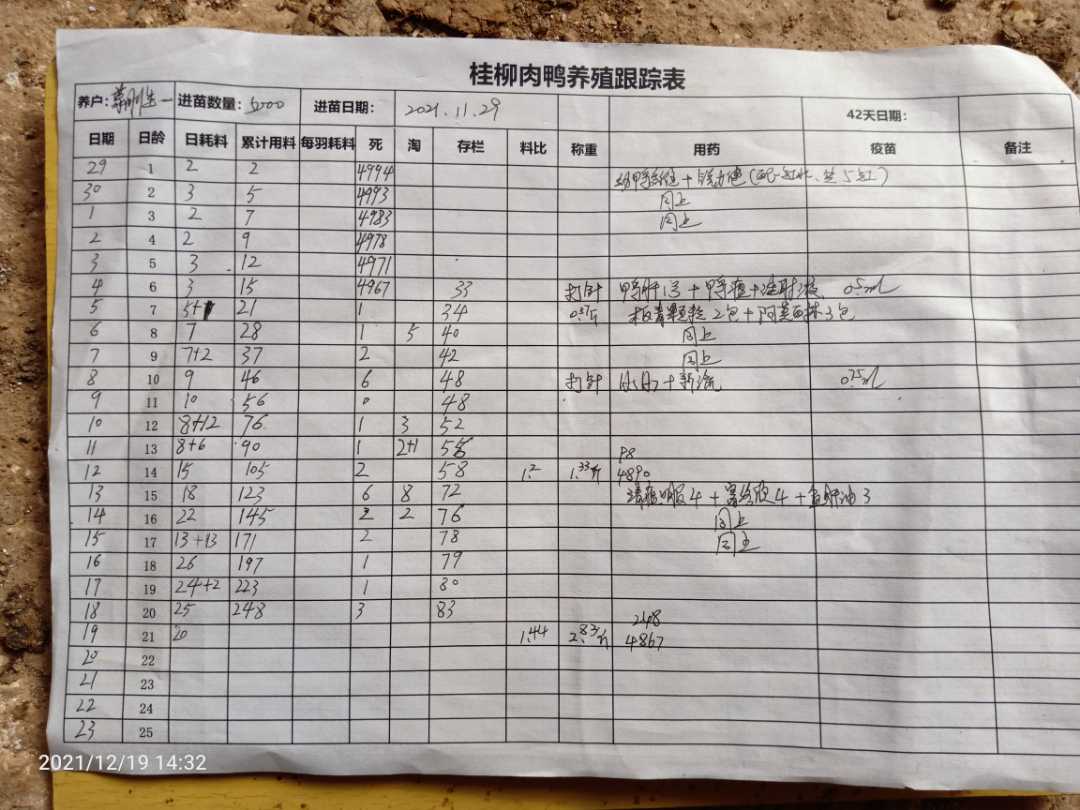 桂柳肉鸭养殖跟踪表
养户: 进苗数量: 5000 进苗日期: 2021.11.29 42天日期:
日期 日龄 日耗料 累计用料 每羽耗料 死 淘 存栏 料比 称重 用药 疫苗 备注
29 1 2 2 4994
30 2 3 5 4993 同上
1 3 2 7 4983 同上
2 4 2 9 4978
3 5 3 12 4971
4 6 3 15 4967 33 打针 鸭肝 + 鸭瘟+注射液 0.5ml
5 7 21 1 34 板青颗粒2包+阿莫西林3包
6 8 7 28 1 5 40 同上
7 9 7+2 37 2 42 同上
8 10 9 46 6 48 打针 + 新流 0.75ml
9 11 10 56 0 48
10 12 8+12 76 1 3 52
11 13 8+6 90 1 2+1 55 P8
12 14 15 105 2 58 1.2 1.33斤 4890
13 15 18 123 6 8 72 4+ 4+鱼肝油3
14 16 22 145 2 2 76 同上
15 17 13+13 171 2 78 同上
16 18 26 197 1 79
17 19 24+2 223 1 80
18 20 25 248 3 83
19 21 20 1.44 2.83斤 4867
20 22
21 23
22 24
23 25
2021/12/19 14:32